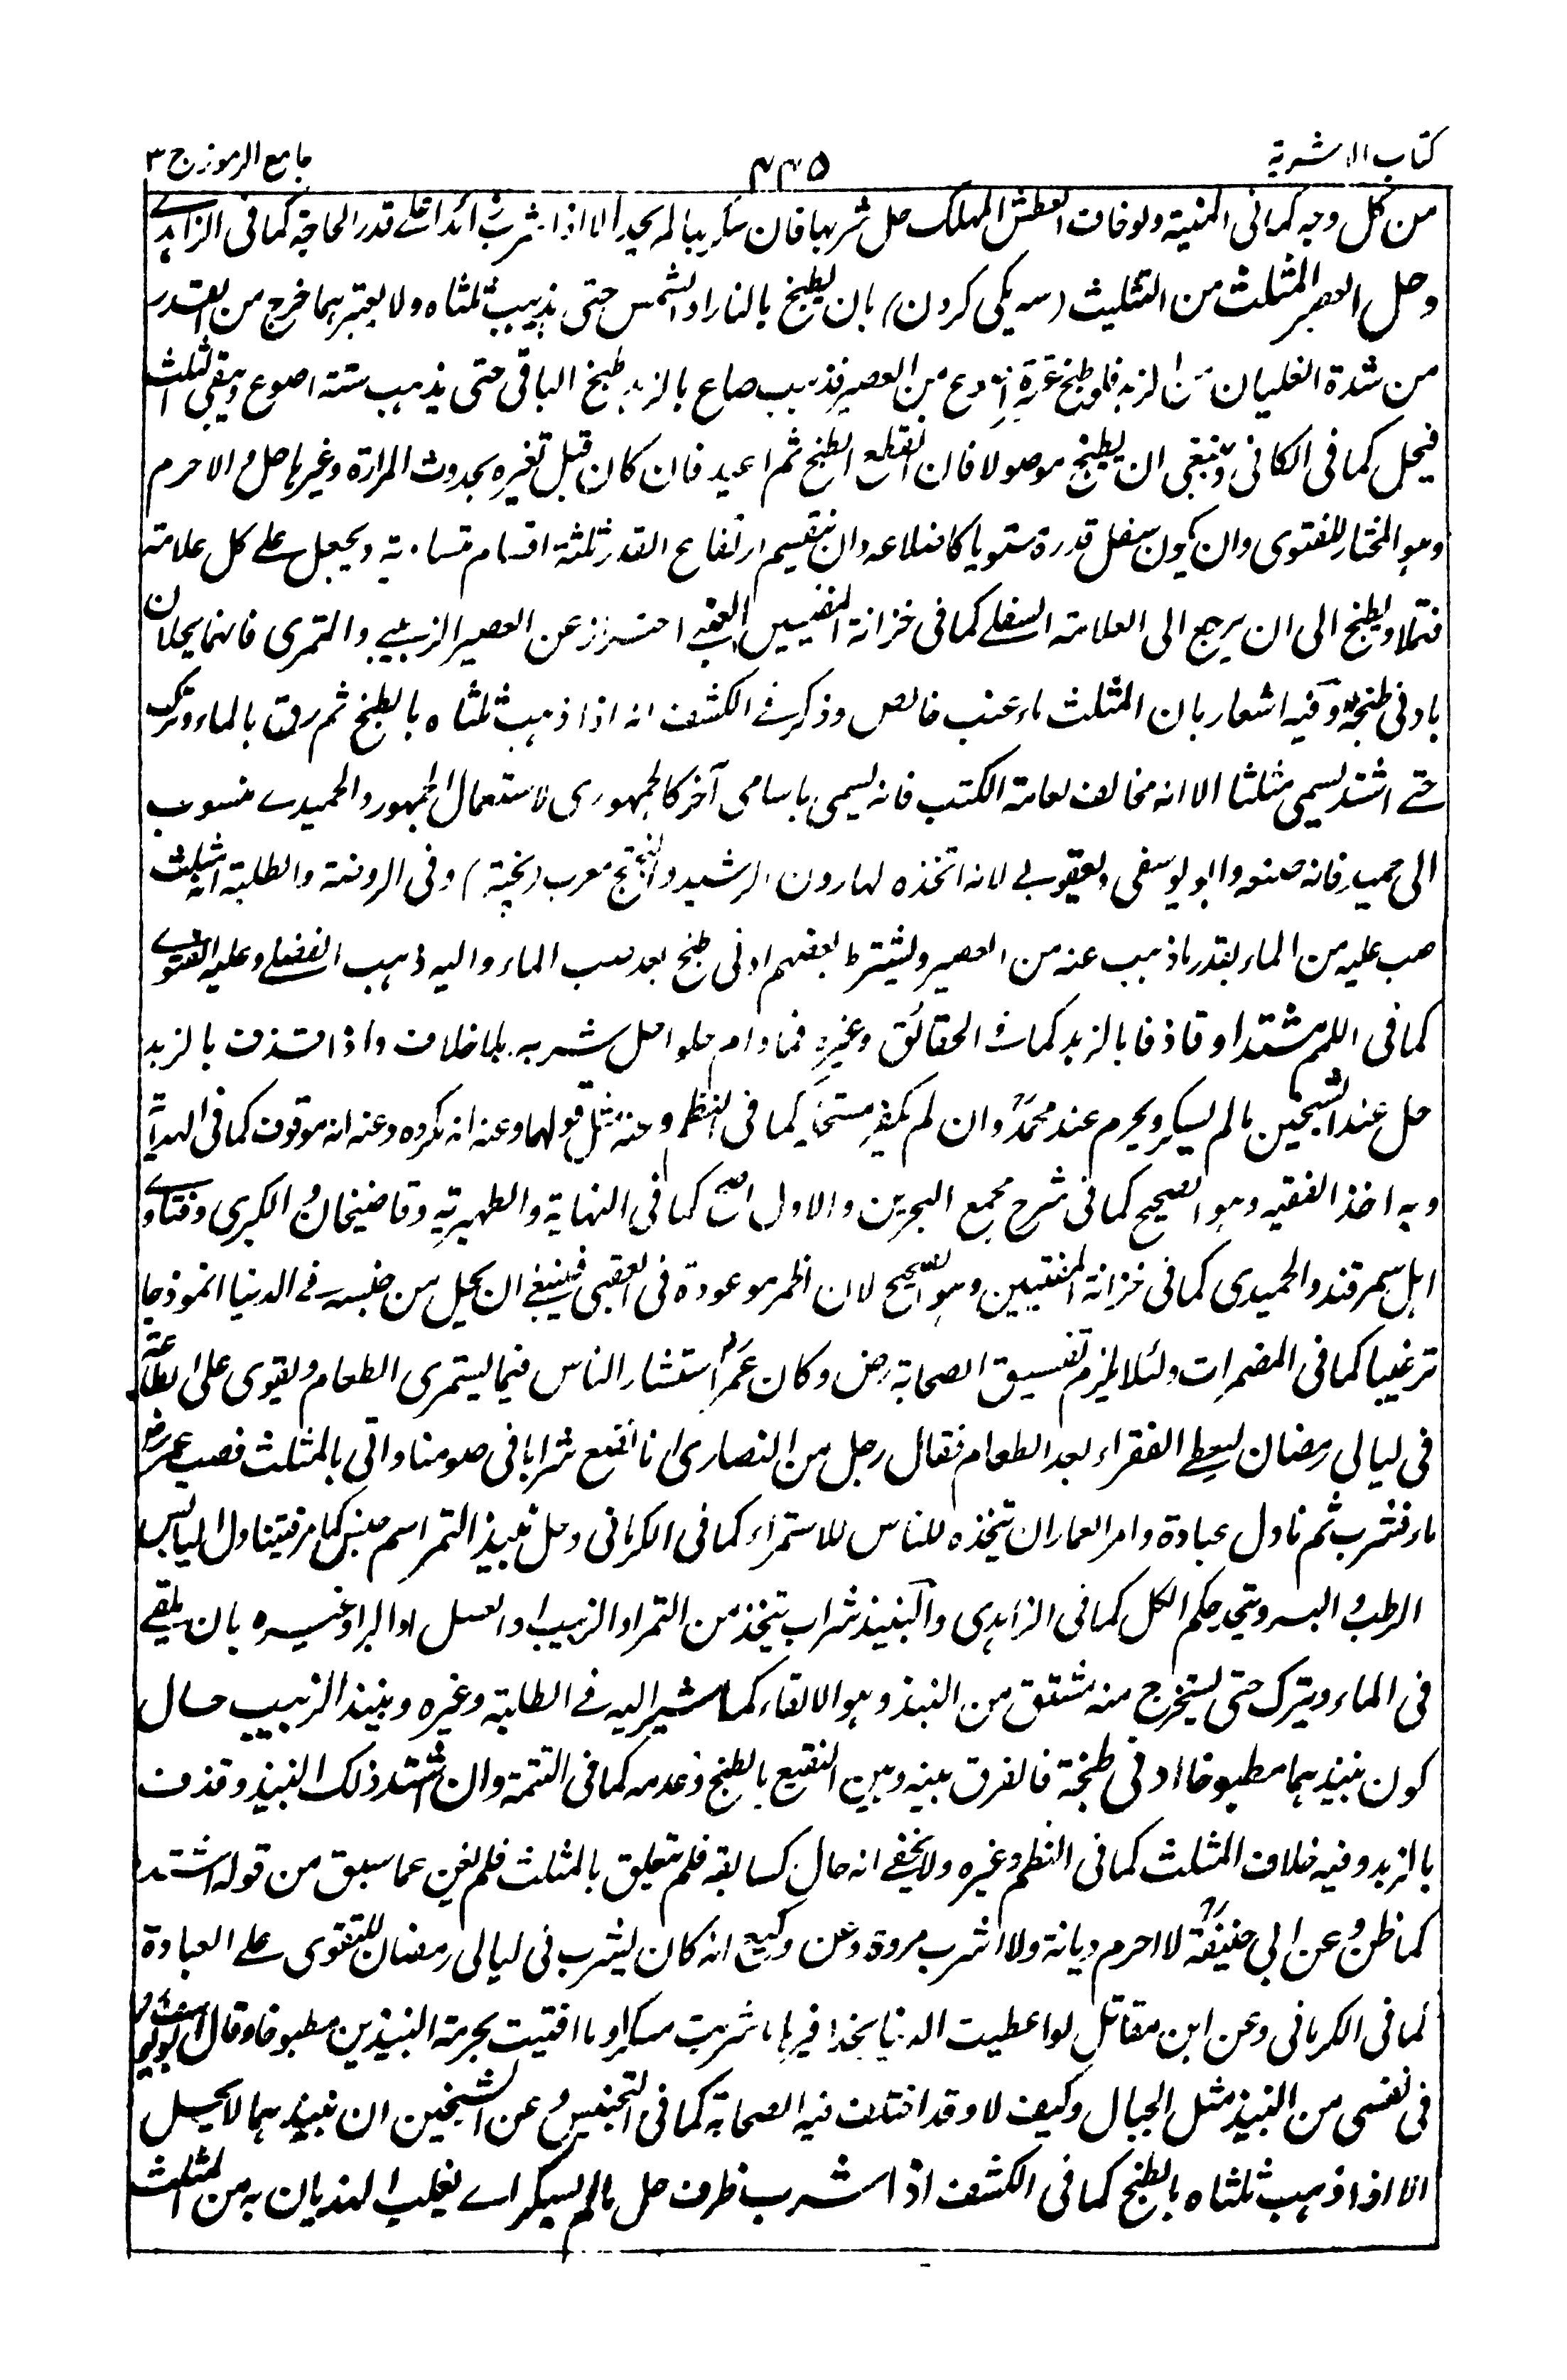 كتاب الاشربة ٤٤٥ جامع الرموز ج ٣
من كل وجه كما فى المنية ولو خاف العطش المهلك حل شربها فان سكر بها لم يحد الا اذا شرب زائدا على قدر الحاجة كما فى الزاهدى
وحل العصير المثلث من التثليث (سه یکی کردن) بان يطبخ بالنار او الشمس حتى يذهب ثلثاه ولا يعتبر بما خرج من القدر
من شدة الغليان من الزبد فلو طبخ عشرة اصوع من العصير فذهب صاع بالزبد طبخ الباقى حتى يذهب ستة اصوع ويبقى الثلث
فيحل كما فى الكافى وينبغى ان يطبخ موصولا فان انقطع الطبخ ثم اعيد فان كان قبل تغيره بحدوث المرارة وغيرها حل والا حرم
وهو المختار للفتوى وان يكون سفل قدره مستويا كاضلاعه وان ينقسم ارتفاع القدر ثلثة اقسام متساوية ويجعل على كل علامة
فتملأ ويطبخ الى ان يرجع الى العلامة السفلى كما فى خزانة المفتيين العنبى احتراز عن العصير الزبيبى والتمرى فانهما يحلان
بادنى طبخة وفيه اشعار بان المثلث ماء عنب خالص وذكر فى الكشف انه اذا ذهب ثلثاه بالطبخ ثم رق بالماء وترك
حتى اشتد يسمى مثلثا الا انه مخالف لعامة الكتب فانه يسمى باسامى آخر كالجمهورى لاستعمال الجمهور والحميدى منسوب
الى حميد فانه صنعه وابو يوسفى ويعقوبى لانه اتخذه لهارون الرشيد والبختج معرب (پخته) وفى الروضة والطلبة انه مثلث
صب عليه من الماء بقدر ما ذهب عنه من العصير ويشترط بعضهم ادنى طبخ بعد صب الماء واليه ذهب الفضلى وعليه الفتوى
كما فى اللمم مشتدا وقاذفا بالزبد كما فى الحقائق وغيره فما دام حلوا حل شربه بلا خلاف واذا قذف بالزبد
حل عند الشيخين ما لم يسكر ويحرم عند محمد وان لم يكفر مستحله كما فى النظم وعنه مثل قولهما وعنه انه مكروه وعنه انه موقوف كما فى الهداية
وبه اخذ الفقيه وهو الصحيح كما فى شرح مجمع البحرين والاول اصح كما فى النهاية والظهيرية وقاضيخان والكبرى وفتاوى
اهل سمرقند والحميدى كما فى خزانة المفتيين وهو الصحيح لان الخمر موعودة فى العقبى فينبغى ان يحل من جنسه فى الدنيا انموذجا
ترغيبا كما فى المضمرات ولئلا يلزم تفسيق الصحابة رض وكان عمر استشار الناس فيما يستمرى الطعام ويقوى على الطاعة
فى ليالى رمضان ليعطى الفقراء بعد الطعام فقال رجل من النصارى انا نصنع شرابا فى صومنا واتى بالمثلث فصب عمر رض
ماء فشرب ثم ناول عبادة وامر العمار ان يتخذه للناس للاستمراء كما فى الكرمانى وحل نبيذ التمر اسم جنس كما مر فيتناول اليابس
الرطب والبسر ويتحد حكم الكل كما فى الزاهدى والنبيذ شراب يتخذ من التمر او الزبيب او العسل او البر او غيره بان يلقى
فى الماء ويترك حتى يستخرج منه مشتق من النبذ وهو الالقاء كما اشير اليه فى الطلبة وغيره ونبيذ الزبيب حال
كون نبيذهما مطبوخا ادنى طبخة فالفرق بينه وبين النقيع بالطبخ وعدمه كما فى التتمة وان اشتد ذلك النبيذ وقذف
بالزبد وفيه خلاف المثلث كما فى النظم وغيره ولا يخفى انه حال كسابقه فلم يتعلق بالمثلث فلم يغن عما سبق من قوله اشتد
كما ظن وعن ابى حنيفة لا احرم ديانة ولا اشرب مروة وعن وكيع انه كان يشرب فى ليالى رمضان للتقوى على العبادة
كما فى الكرمانى وعن ابن مقاتل لو اعطيت الدنيا بحذافيرها ما شربت مسكرا وما افتيت بحرمة النبيذين مطبوخا وقال ابو يوسف
فى نفسى من النبيذ مثل الجبال وكيف لا وقد اختلف فيه الصحابة كما فى التجنيس وعن الشيخين ان نبيذهما لا يحل
الا اذا ذهب ثلثاه بالطبخ كما فى الكشف اذا شرب ظرف حل ما لم يسكر اى يغلب الهذيان به من المثلث